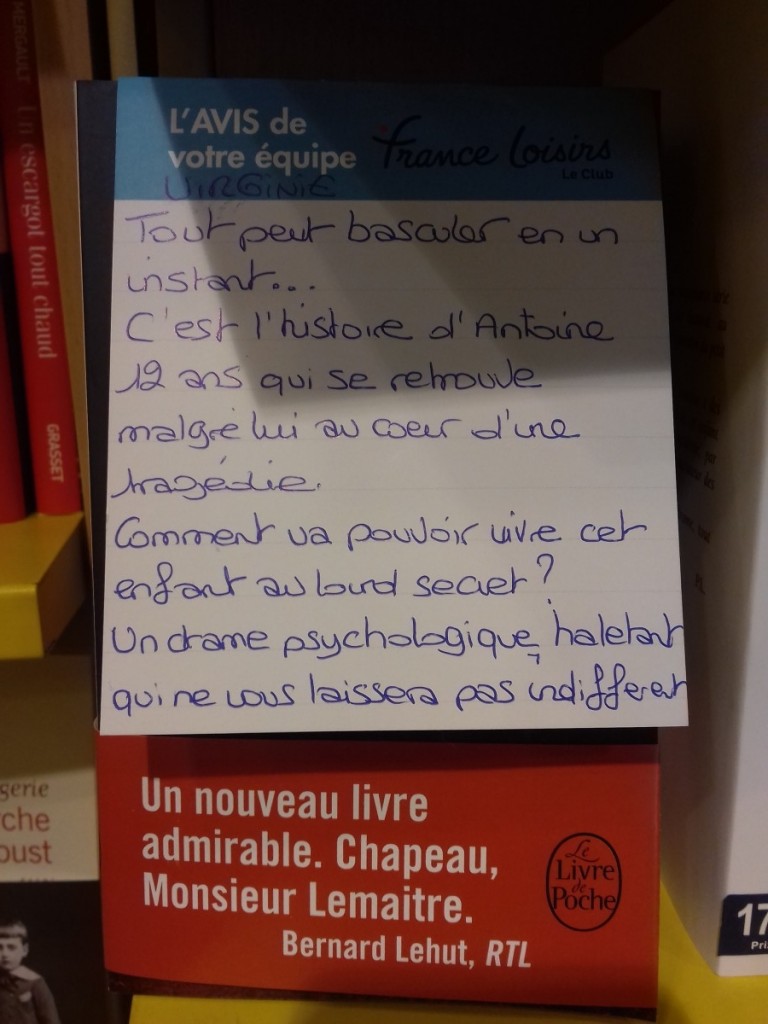 MERGAULT
Un escargot tout chaud
GRASSET
L'AVIS de
votre équipe
France Loisirs
Le Club
VIRGINIE
Tout peut basculer en un
instant...
C'est l'histoire d'Antoine
12 ans qui se retrouve
malgré lui au coeur d'une
tragédie.
Comment va pouvoir vivre cet
enfant au lourd secret ?
Un drame psychologique, haletant
qui ne vous laissera pas indifférent
Un nouveau livre
admirable. Chapeau,
Monsieur Lemaitre.
Bernard Lehut, RTL
Le
Livre
de
Poche
gerie
rche
oust
17
Pri